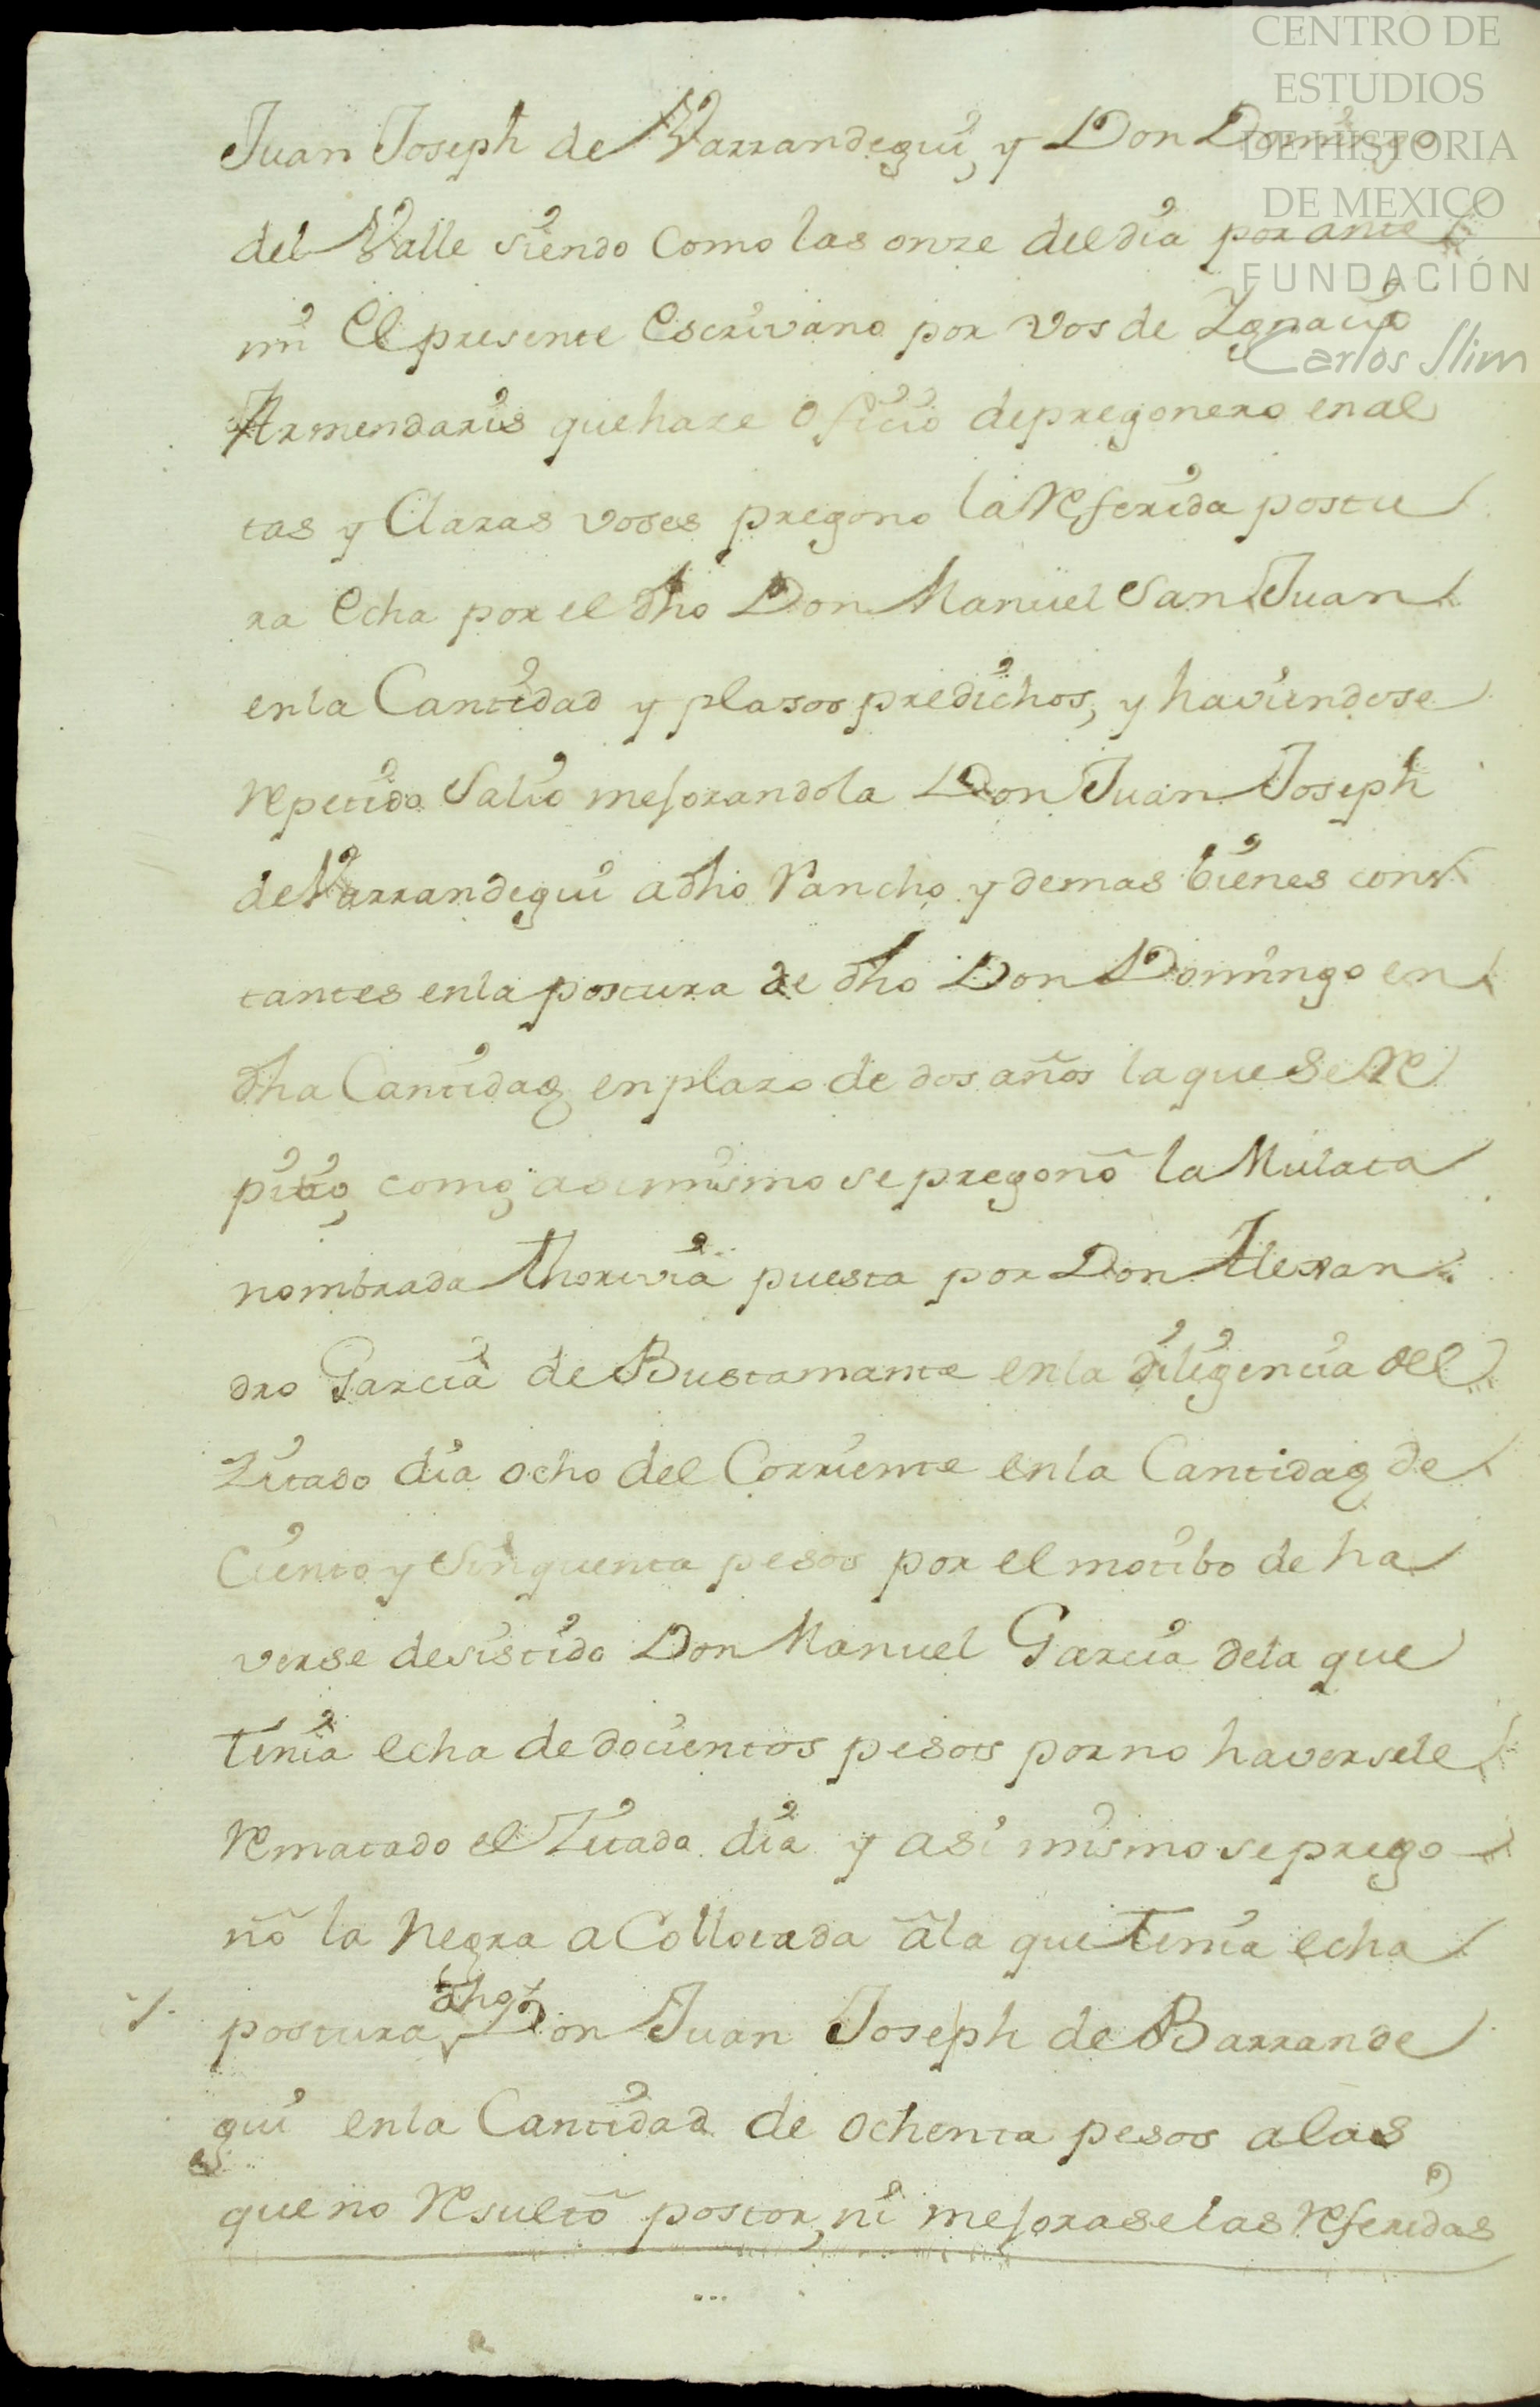 CENTRO DE
ESTUDIOS
DE HISTORIA
DE MEXICO
FUNDACIÓN
Carlos Slim
Juan Joseph de Varrandegui, y Don Domingo
del Valle siendo como las onze del dia por ante
mi El presente Escrivano por vos de Ygnacio
Armendaris que haze oficio de pregonero en al
tas y Claras voses pregono la Referida postu
ra Echa por el dho Don Manuel San Juan
en la Cantidad y plasos predichos, y haviendose
Repetido Salio mejorandola Don Juan Joseph
de Varrandegui a dho Rancho y demas bienes cons
tantes en la postura de dho Don Domingo en
dha Cantidad en plazo de dos años la que se Re
pitio, como, asi mismo se pregonõ la Mulata
nombrada Thorivia puesta por Don Alexan
dro Garcia de Bustamante en la diligencia del
Zitado dia ocho del Corriente en la Cantidad de
Ciento y Sinquenta pesos por el motibo de ha
verse desistido Don Manuel Garcia de la que
tenia echa de docientos pesos por no haversele
Rematado el Zitado dia y asi mismo se prego
nõ la Negra a Collocada ã la que tenia echa
postura dho Don Juan Joseph de Barrande
gui en la Cantidad de ochenta pesos a las
que no Resultõ postor, ni mejorase las Referidas